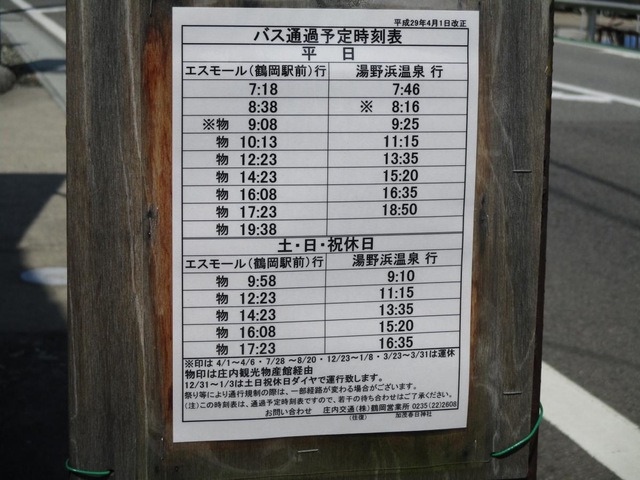 平成29年4月1日改正
バス通過予定時刻表
平 日
エスモール(鶴岡駅前)行 湯野浜温泉 行
7:18 7:46
8:38 ※ 8:16
※物 9:08 9:25
物 10:13 11:15
物 12:23 13:35
物 14:23 15:20
物 16:08 16:35
物 17:23 18:50
物 19:38
土・日・祝休日
エスモール(鶴岡駅前)行 湯野浜温泉 行
物 9:58 9:10
物 12:23 11:15
物 14:23 13:35
物 16:08 15:20
物 17:23 16:35
※印は 4/1～4/6・7/28～8/20・12/23～1/8・3/23～3/31は運休
物印は庄内観光物産館経由
12/31～1/3は土日祝休日ダイヤで運行致します。
祭り等により通行規制の際は、一部経路が変わる場合がございます。
(注)この時刻表は、通過予定時刻表ですので、若干の待ち合わせはご了承ください。
お問い合わせ 庄内交通(株)鶴岡営業所 0235(22)2608
(往復) 加茂春日神社